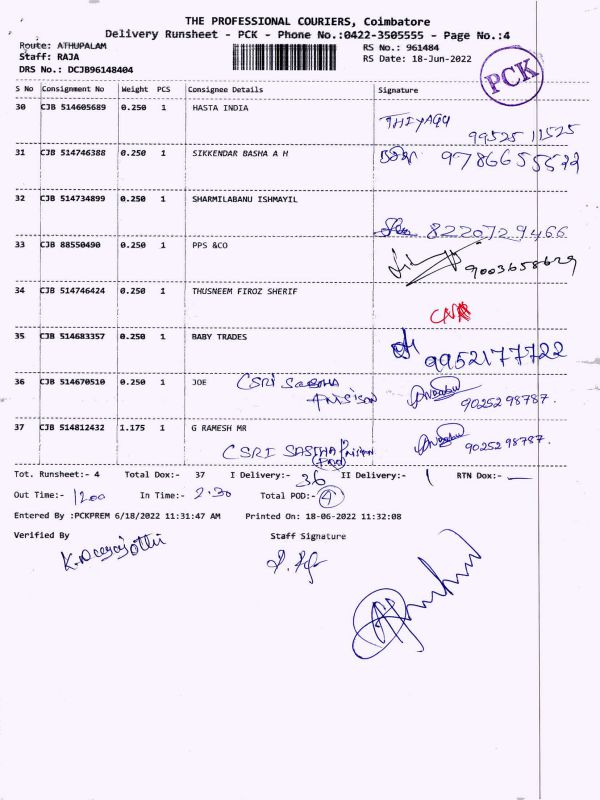 THE PROFESSIONAL COURIERS, Coimbatore
Delivery Runsheet - PCK - Phone No.:0422-3505555 - Page No.:4
Route: ATHUPALAM RS No.: 961484
Staff: RAJA RS Date: 18-Jun-2022
DRS No.: DCJB96148404
PCK
S No Consignment No Weight PCS Consignee Details Signature
30 CJB 514605689 0.250 1 HASTA INDIA
THIYAGU
99525 11525
31 CJB 514746388 0.250 1 SIKKENDAR BASHA A H
32 CJB 514734899 0.250 1 SHARMILABANU ISHMAYIL
8220729466
33 CJB 88550490 0.250 1 PPS &CO
9003658629
34 CJB 514746424 0.250 1 THUSNEEM FIROZ SHERIF
35 CJB 514683357 0.250 1 BABY TRADES
9952177722
36 CJB 514670510 0.250 1 JOE CSRI
90252 98787.
37 CJB 514812432 1.175 1 G RAMESH MR
CSRI SASTHA
90252 98787.
Tot. Runsheet:- 4 Total Dox:- 37 I Delivery:- 36 II Delivery:- 1 RTN Dox:- —
Out Time:- 1200 In Time:- 2.30 Total POD:- 4
Entered By :PCKPREM 6/18/2022 11:31:47 AM Printed On: 18-06-2022 11:32:08
Verified By Staff Signature